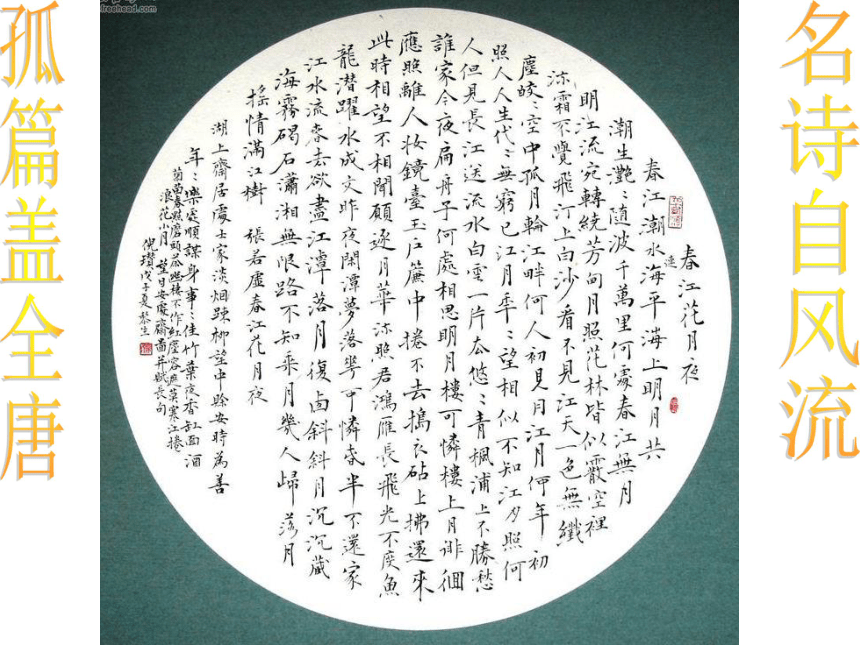 名诗自风流
春江花月夜
春江潮水海平海上明月共
連
潮生艷〻隨波千萬里何處春江無月
明江流宛轉繞芳甸月照花林皆似霰空裡
流霜不覺飛汀上白沙看不見江天一色無纖
塵皎〻空中孤月輪江畔何人初見月江月何年初
照人人生代〻無窮已江月年〻望相似不知江月照何
人但見長江送流水白雲一片去悠〻青楓浦上不勝愁
誰家今夜扁舟子何處相思明月樓可憐樓上月徘徊
應照離人妝鏡臺玉戶簾中捲不去搗衣砧上拂還來
此時相望不相聞願逐月華流照君鴻雁長飛光不度魚
龍潛躍水成文昨夜閑潭夢落花可憐春半不還家
江水流春去欲盡江潭落月復西斜斜月沉沉藏
海霧碣石瀟湘無限路不知乘月幾人歸落月
搖情滿江樹 張若虛春江花月夜
湖上齋居處士家淡烟疎柳望中賒安時為善
年〻樂處順謀身事〻佳竹葉夜香缸面酒
菊苗春點磨頭茶幽棲不作紅塵客遮莫寒江捲
浪花小月 望日安處齋圖并賦長句
倪瓚戊子夏黎生
孤篇盖全唐